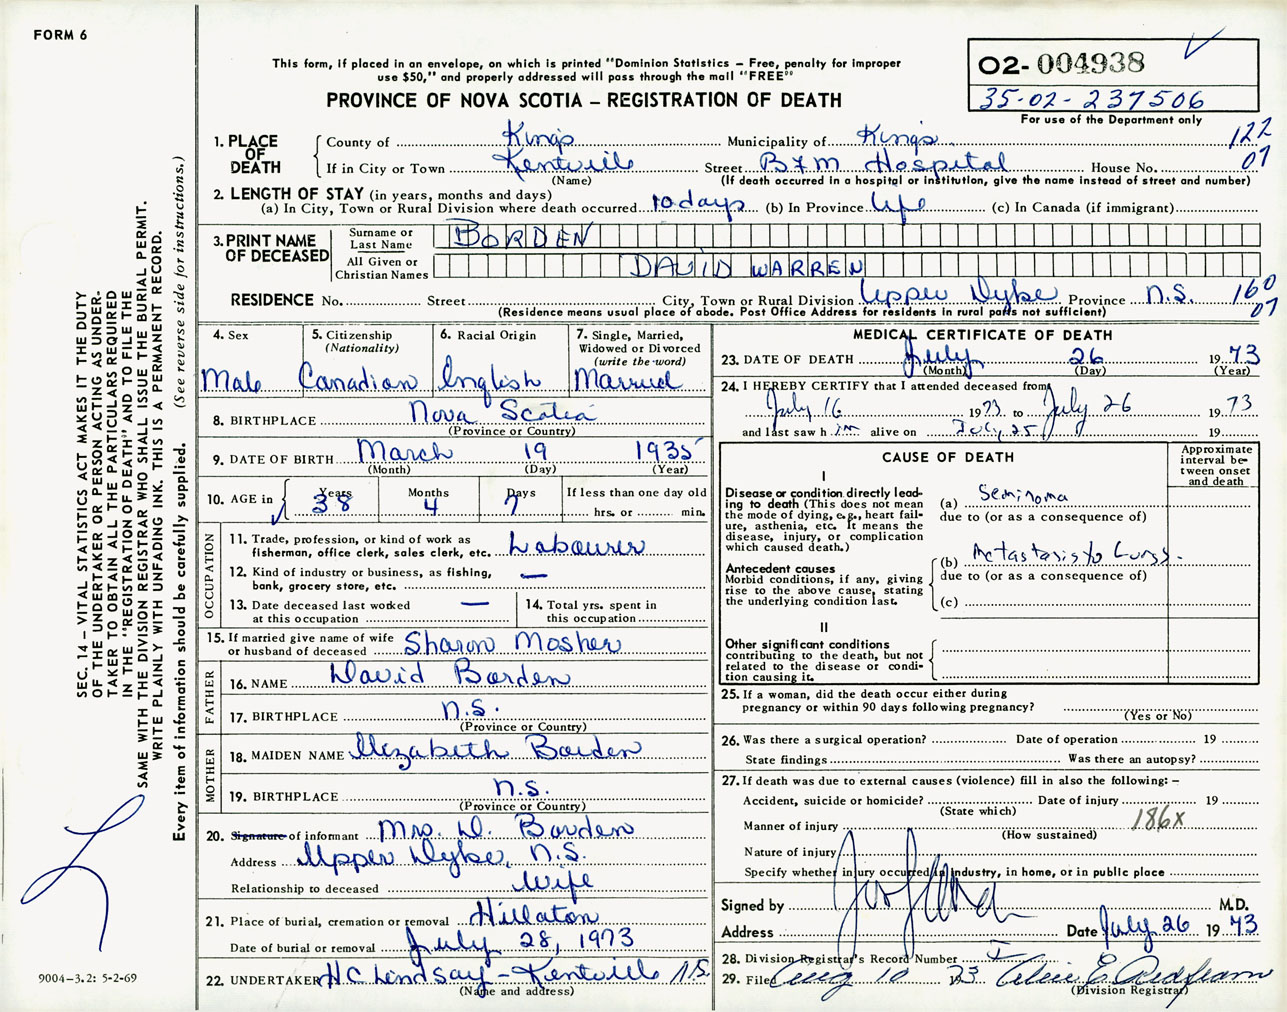 FORM 6
This form, if placed in an envelope, on which is printed "Dominion Statistics – Free, penalty for improper
use $50," and properly addressed will pass through the mail "FREE"
PROVINCE OF NOVA SCOTIA – REGISTRATION OF DEATH
02-004938
35-02-237506
For use of the Department only
1. PLACE OF DEATH
County of Kings Municipality of Kings 122
If in City or Town Kentville Street B.F.M Hospital House No. 07
(Name) (If death occurred in a hospital or institution, give the name instead of street and number)
2. LENGTH OF STAY (in years, months and days)
(a) In City, Town or Rural Division where death occurred 10 days (b) In Province Life (c) In Canada (if immigrant)
3. PRINT NAME OF DECEASED
Surname or Last Name BORDEN
All Given or Christian Names DAVID WARREN
RESIDENCE No. Street City, Town or Rural Division Upper Dyke Province N.S. 160
07
(Residence means usual place of abode. Post Office Address for residents in rural parts not sufficient)
4. Sex
Male
5. Citizenship
(Nationality)
Canadian
6. Racial Origin
English
7. Single, Married,
Widowed or Divorced
(write the word)
Married
8. BIRTHPLACE Nova Scotia
(Province or Country)
9. DATE OF BIRTH March 19 1935
(Month) (Day) (Year)
10. AGE in
Years 38
Months 4
Days 7
If less than one day old
hrs. or min.
OCCUPATION
11. Trade, profession, or kind of work as
fisherman, office clerk, sales clerk, etc. Labourer
12. Kind of industry or business, as fishing,
bank, grocery store, etc. —
13. Date deceased last worked —
at this occupation
14. Total yrs. spent in
this occupation
15. If married give name of wife
or husband of deceased Sharon Mosher
FATHER
16. NAME David Borden
17. BIRTHPLACE N.S.
(Province or Country)
MOTHER
18. MAIDEN NAME Elizabeth Borden
19. BIRTHPLACE N.S.
(Province or Country)
20. Signature of informant Mrs. D. Borden
Address Upper Dyke, N.S.
Relationship to deceased Wife
21. Place of burial, cremation or removal Hillaton
Date of burial or removal July 28, 1973
22. UNDERTAKER H C Lindsay – Kentville N.S.
(Name and address)
MEDICAL CERTIFICATE OF DEATH
23. DATE OF DEATH July 26 1973
(Month) (Day) (Year)
24. I HEREBY CERTIFY that I attended deceased from
July 16 1973 to July 26 1973
and last saw h im alive on July 25 19
CAUSE OF DEATH
Approximate
interval be-
tween onset
and death
I
Disease or condition directly lead-
ing to death (This does not mean
the mode of dying, e.g., heart fail-
ure, asthenia, etc. It means the
disease, injury, or complication
which caused death.)
(a) Seminoma
due to (or as a consequence of)
(b) Metastasis to Lungs.
due to (or as a consequence of)
(c)
Antecedent causes
Morbid conditions, if any, giving
rise to the above cause, stating
the underlying condition last.
II
Other significant conditions
contributing to the death, but not
related to the disease or condi-
tion causing it.
25. If a woman, did the death occur either during
pregnancy or within 90 days following pregnancy?
(Yes or No)
26. Was there a surgical operation? Date of operation 19
State findings Was there an autopsy?
27. If death was due to external causes (violence) fill in also the following: –
Accident, suicide or homicide? Date of injury 19
(State which)
Manner of injury 186X
(How sustained)
Nature of injury
Specify whether injury occurred in industry, in home, or in public place
Signed by M.D.
Address Date July 26 1973
28. Division Registrar's Record Number
29. Filed Aug 10 1973
(Division Registrar)
SEC. 14 – VITAL STATISTICS ACT MAKES IT THE DUTY
OF THE UNDERTAKER OR PERSON ACTING AS UNDER-
TAKER TO OBTAIN ALL THE PARTICULARS REQUIRED
IN THE "REGISTRATION OF DEATH" AND TO FILE THE
SAME WITH THE DIVISION REGISTRAR WHO SHALL ISSUE THE BURIAL PERMIT.
WRITE PLAINLY WITH UNFADING INK. THIS IS A PERMANENT RECORD.
Every item of information should be carefully supplied. (See reverse side for instructions.)
9004–3.2: 5-2-69